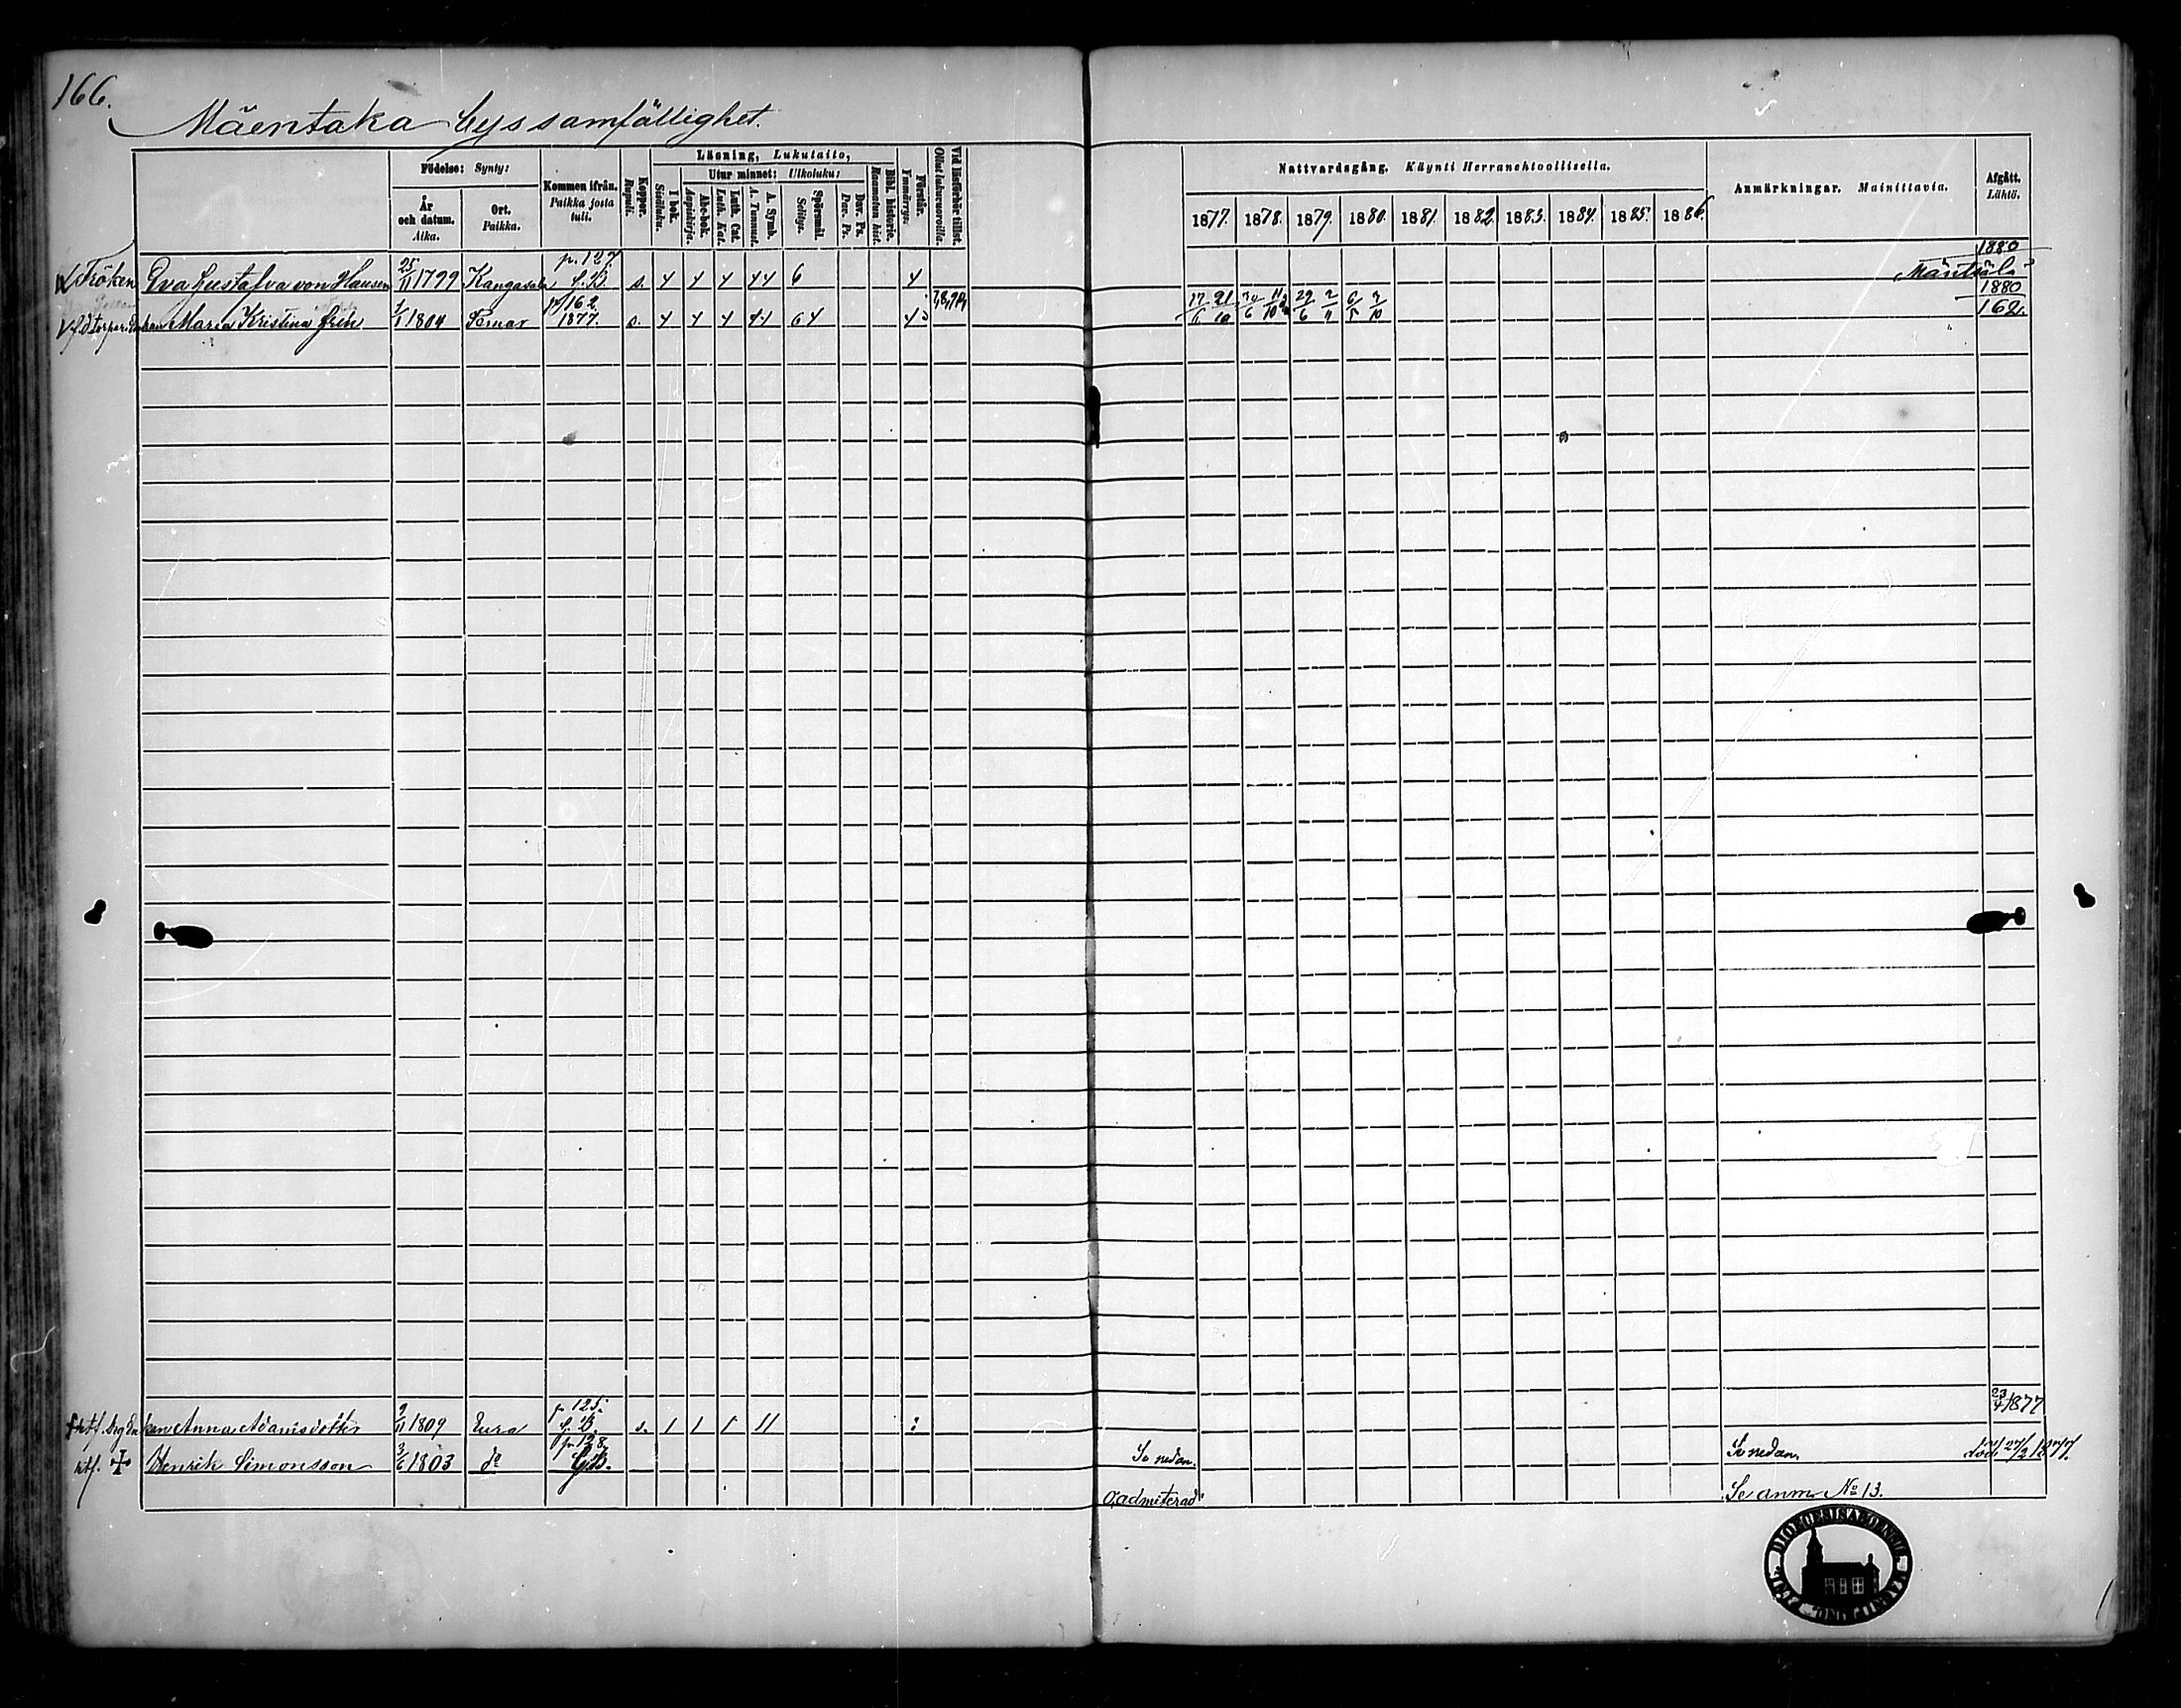 166.
Mäentaka bys samfällighet.
Födelse: Synty:
År och datum. Aika.
Ort. Paikka.
Kommen ifrån. Paikka josta tuli.
Koppor. Rupuli.
Läsning, Lukutaito,
I bok. Sisäluku.
Utur minnet: Ulkoluku:
Abc-bok. Aapiskirja.
Luth. Cat. Luth. Kat.
A. Symb. A. Tunnust.
Spörsmål. Selitys.
Dav. Ps. Dav. Ps.
Bibl. historie. Raamatun hist.
Förstår. Ymmärrys.
Vid läsförhör tillst. Ollut lukuvuorolla.
Nattvardsgång. Käynti Herranehtoollisella.
1877. 1878. 1879. 1880. 1881. 1882. 1883. 1884. 1885. 1886.
Anmärkningar. Mainittavia.
Afgått. Lähtö.
p. 127 1880
Fröken Eva Gustafva von Hausen 25/11 1799 Kangasala S.B. s. 6 Mäntsälä
p. 162 7,8,79 1880
Maria Kristina 1/1 1804 1877. s. 17/6 21/10 29/6 2/11 162.
p. 125. 23/4 1877
Anna Adamsdotter 9/11 1809 Eura S.B. s. 1 1 1 11
p. 128
Henrik Simonsson 3/6 1803 do S.B. Se nedan. Se nedan. död 27/2 1877.
Oadmiterad Se anm. No 13.